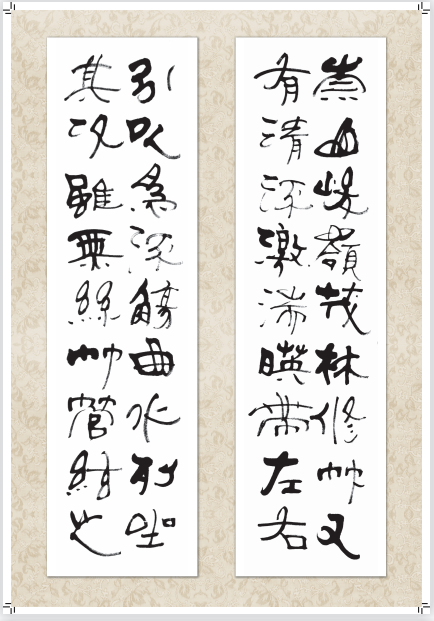 崇山峻嶺茂林修竹又
有清流激湍暎帶左右
引以為流觴曲水列坐
其次雖無絲竹管絃之